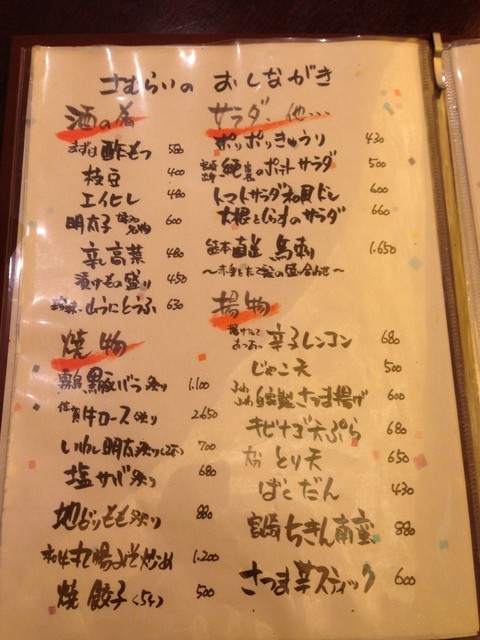 さむらいの おしながき
酒の肴
まずは 酢もつ 580
枝豆 400
エイヒレ 480
明太子 600
辛し高菜 480
漬けもの盛り 450
山うにとうふ 630
焼物
黒豚バラ焼り 1.100
佐賀牛ロース焼り 2.650
いわし明太焼り(2本) 700
塩サバ焼り 680
地どりもも焼り 880
和牛丸腸みそ炒め 1.200
焼餃子(5ヶ) 500
サラダ、他…
ポリポリきゅうり 430
のポテトサラダ 500
トマトサラダ和風ドレ 600
大根としらすのサラダ 660
熊本直送 馬刺 1.650
揚物
揚げたて あつあつ 辛子レンコン 680
じゃこ天 500
ふわふわ 自家製さつま揚げ 600
キビナゴ天ぷら 680
とり天 650
ばくだん 430
宮崎ちきん南蛮 880
さつま芋スティック 600